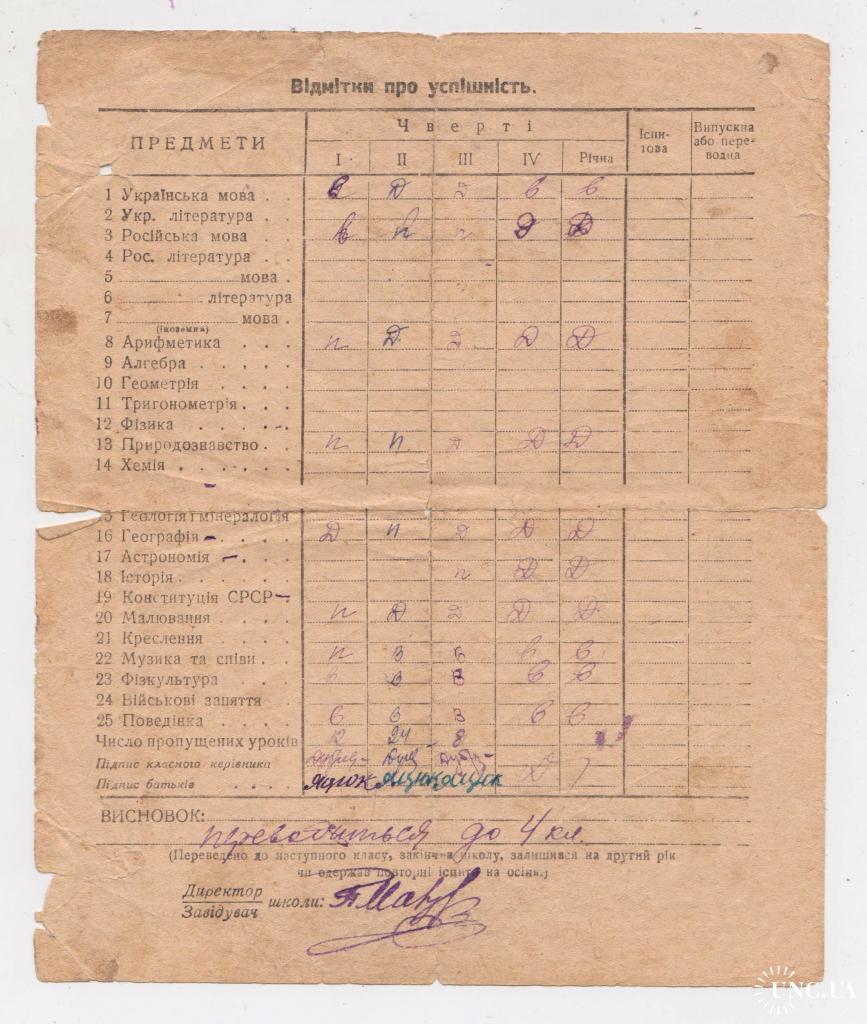 Відмітки про успішність.
ПРЕДМЕТИ Чверті Іспитова Випускна або переводна
I II III IV Річна
1 Українська мова . . в Д д в в
2 Укр. література . .
3 Російська мова . . в п п Д Д
4 Рос. література . .
5 мова .
6 література
7 мова .
(іноземна)
8 Арифметика . . . п Д д Д Д
9 Алгебра . . . . .
10 Геометрія . . . .
11 Тригонометрія . . .
12 Фізика . . . .
13 Природознавство . . п п д Д Д
14 Хемія . . . . . .
15 Геологія і мінералогія
16 Географія – . . . Д п д Д Д
17 Астрономія – . .
18 Історія . . . . . п Д Д
19 Конституція СРСР –
20 Малювання . . . . п Д д Д Д
21 Креслення . . . .
22 Музика та співи . . п в в в в
23 Фізкультура . . . в в в в в
24 Військові заняття .
25 Поведінка . . . . в в в в в
Число пропущених уроків 12 24 8
Підпис класного керівника
Підпис батьків . . . . Яцюк Яцюк Яцюк
ВИСНОВОК:
переводиться до 4 кл.
(Переведено до наступного класу, закінчив школу, залишився на другий рік
чи одержав повторні іспити на осінь.)
Директор
Завідувач школи:
UNC.UA